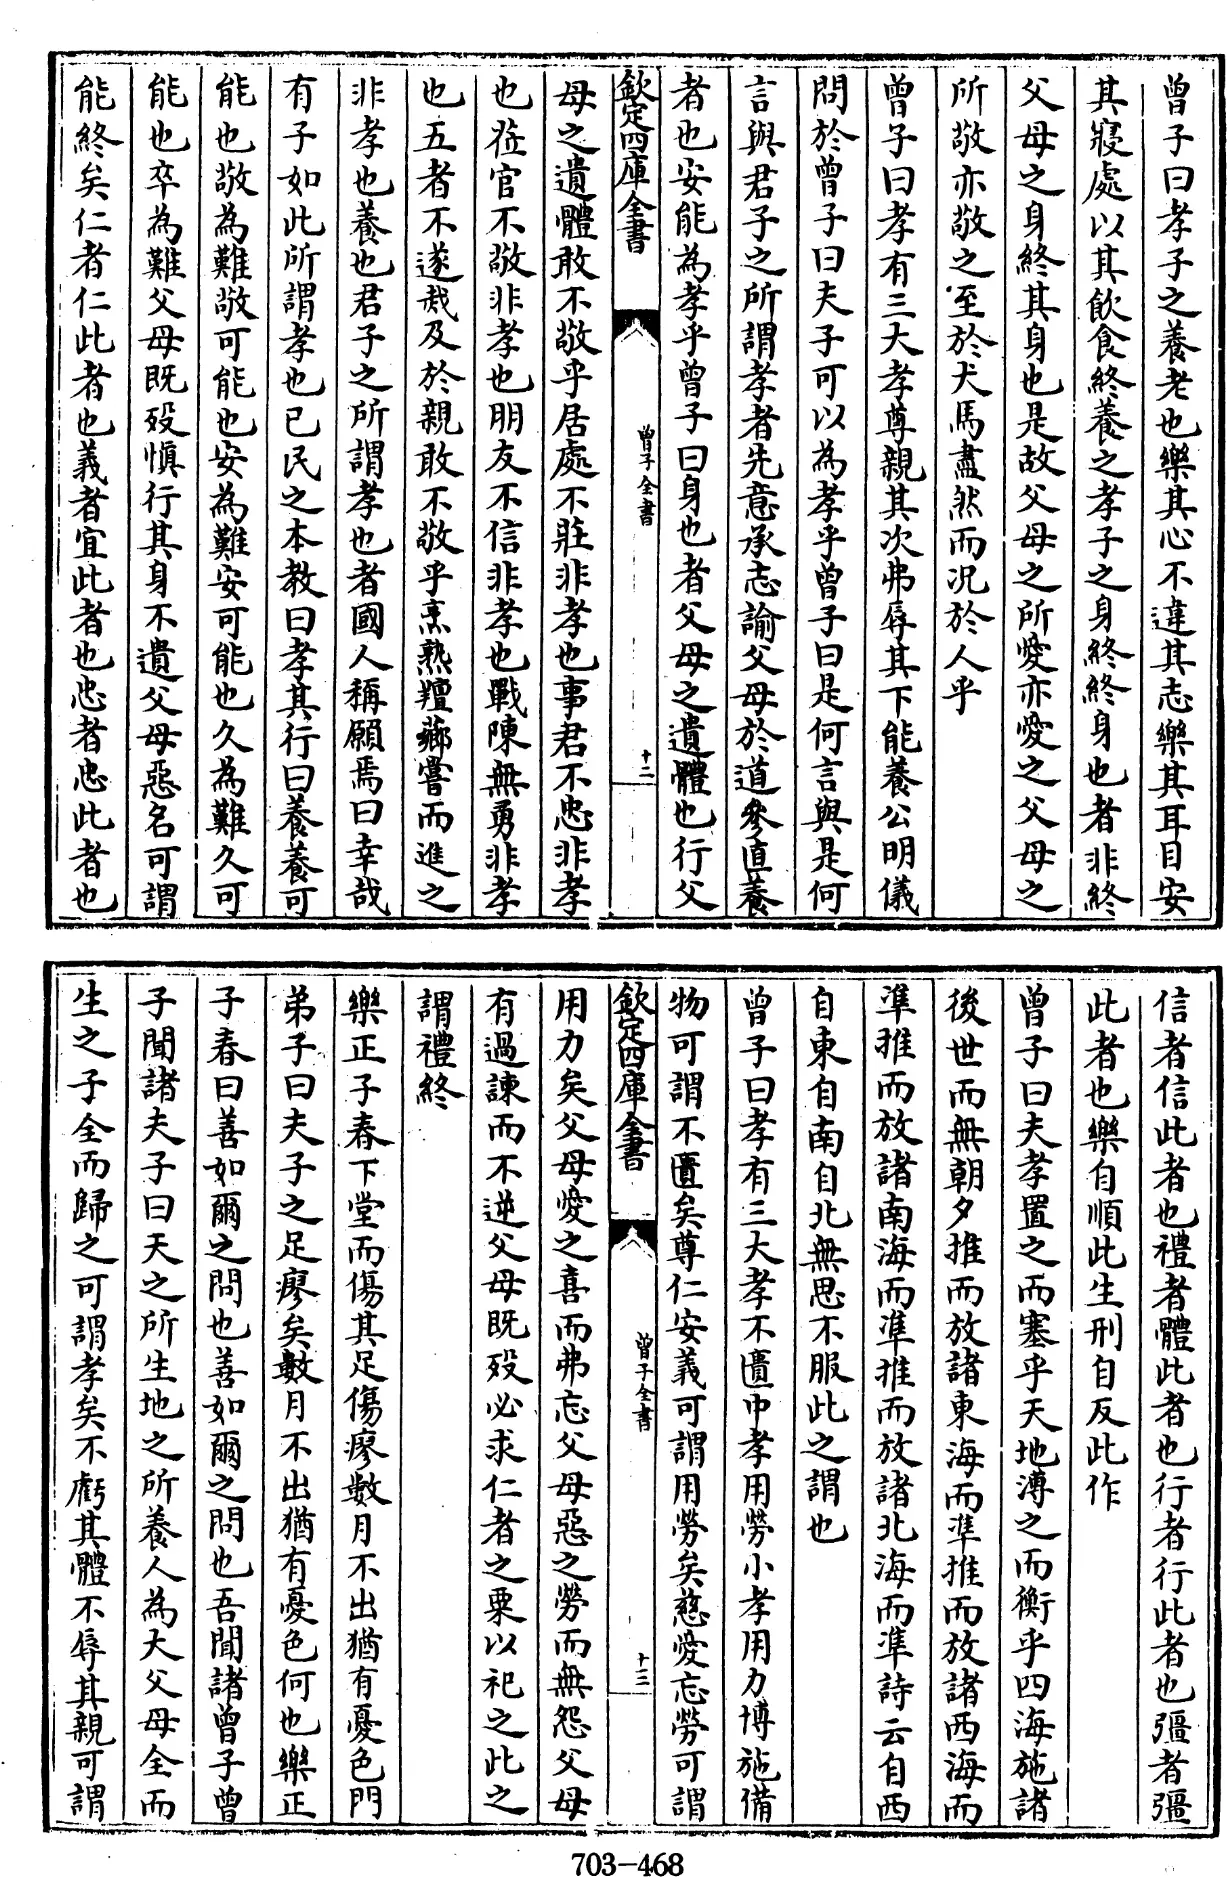 曾子曰孝子之養老也樂其心不違其志樂其耳目安
其寢處以其飲食終養之孝子之身終終身也者非終
父母之身終其身也是故父母之所愛亦愛之父母之
所敬亦敬之至於犬馬盡然而况於人乎
曾子曰孝有三大孝尊親其次弗辱其下能養公明儀
問於曾子曰夫子可以為孝乎曾子曰是何言與是何
言與君子之所謂孝者先意承志諭父母於道參直養
者也安能為孝乎曾子曰身也者父母之遺體也行父
欽定四庫全書
曾子全書
十二
母之遺體敢不敬乎居處不莊非孝也事君不忠非孝
也莅官不敬非孝也朋友不信非孝也戰陳無勇非孝
也五者不遂烖及於親敢不敬乎烹熟羶薌嘗而進之
非孝也養也君子之所謂孝也者國人稱願焉曰幸哉
有子如此所謂孝也已民之本教曰孝其行曰養養可
能也敬為難敬可能也安為難安可能也久為難久可
能也卒為難父母既殁慎行其身不遺父母惡名可謂
能終矣仁者仁此者也義者宜此者也忠者忠此者也
信者信此者也禮者體此者也行者行此者也彊者彊
此者也樂自順此生刑自反此作
曾子曰夫孝置之而塞乎天地溥之而衡乎四海施諸
後世而無朝夕推而放諸東海而準推而放諸西海而
準推而放諸南海而準推而放諸北海而準詩云自西
自東自南自北無思不服此之謂也
曾子曰孝有三大孝不匱中孝用勞小孝用力博施備
物可謂不匱矣尊仁安義可謂用勞矣慈愛忘勞可謂
欽定四庫全書
曾子全書
十三
用力矣父母愛之喜而弗忘父母惡之勞而無怨父母
有過諫而不逆父母既殁必求仁者之粟以祀之此之
謂禮終
樂正子春下堂而傷其足傷瘳數月不出猶有憂色門
弟子曰夫子之足瘳矣數月不出猶有憂色何也樂正
子春曰善如爾之問也善如爾之問也吾聞諸曾子曾
子聞諸夫子曰天之所生地之所養人為大父母全而
生之子全而歸之可謂孝矣不虧其體不辱其親可謂
703-468